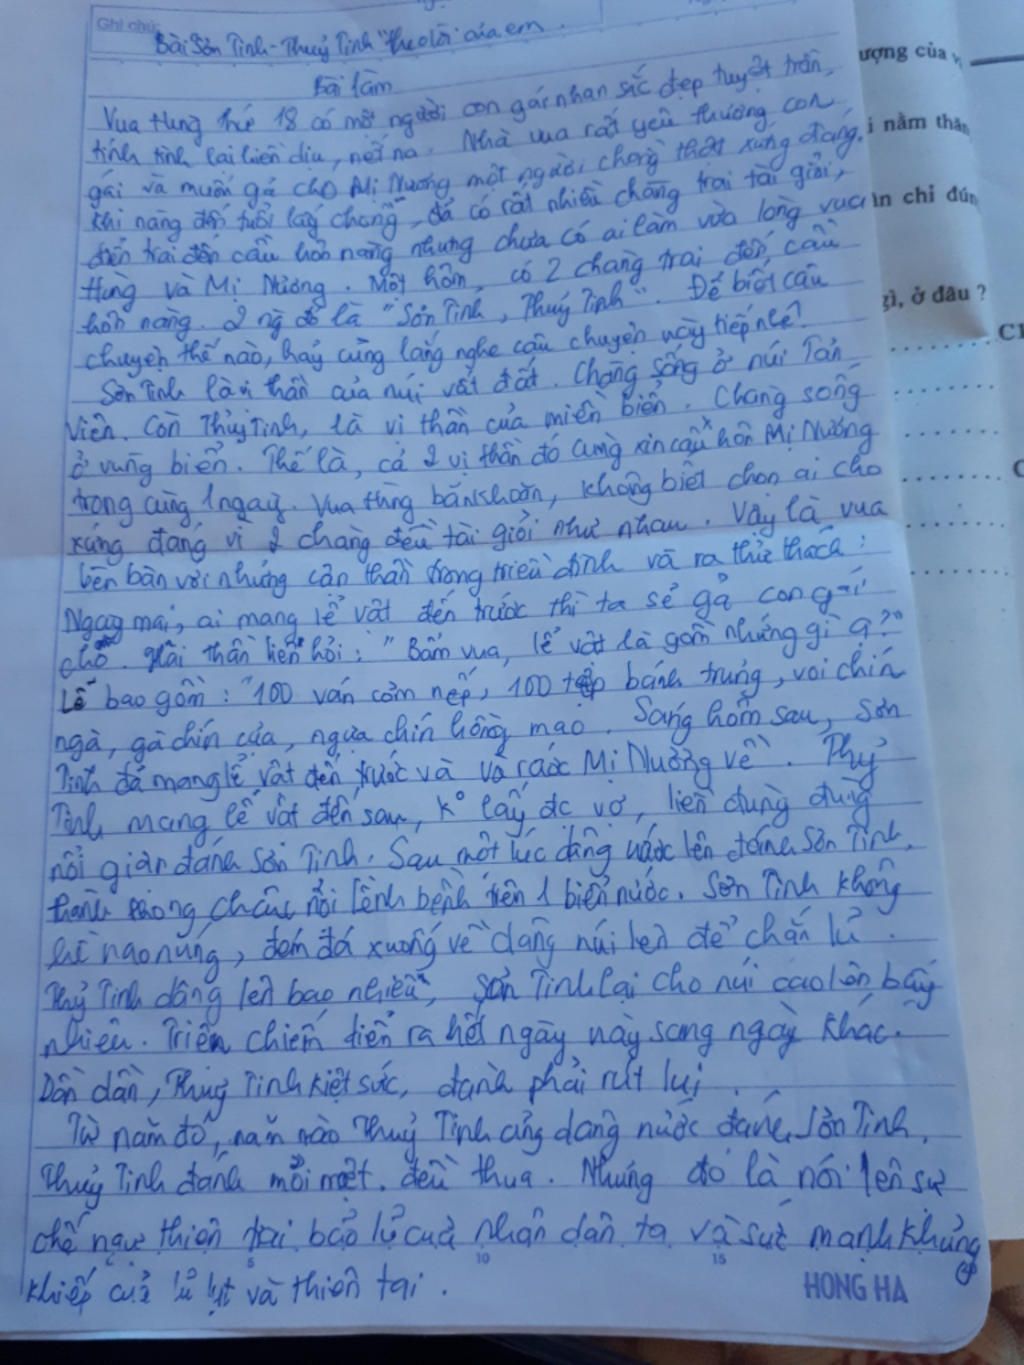 Ghi chú:
Bài Sơn Tinh - Thuỷ Tinh "theo lời" của em.
Bài làm
Vua Hùng thứ 18 có một người con gái nhan sắc đẹp tuyệt trần,
tính tình lại hiền dịu, nết na. Nhà vua rất yêu thương con
gái và muốn gả cho Mị Nương một người chồng thật xứng đáng.
Khi nàng đến tuổi lấy chồng, đã có rất nhiều chàng trai tài giỏi,
điển trai đến cầu hôn nàng nhưng chưa có ai làm vừa lòng vua
Hùng và Mị Nương. Một hôm, có 2 chàng trai đến cầu
hôn nàng. 2 ng đó là "Sơn Tinh, Thuỷ Tinh". Để biết câu
chuyện thế nào, hãy cùng lắng nghe câu chuyện này tiếp nhé!
Sơn Tinh là vị thần của núi vất đất. Chàng sống ở núi Tản
Viên. Còn Thuỷ Tinh, là vị thần của miền biển. Chàng sống
ở vùng biển. Thế là, cả 2 vị thần đó cùng xin cầu hôn Mị Nương
trong cùng 1 ngày. Vua Hùng băn khoăn, không biết chọn ai cho
xứng đáng vì 2 chàng đều tài giỏi như nhau. Vậy là vua
bèn bàn với những cận thần trong triều đình và ra thử thách:
Ngày mai, ai mang lễ vật đến trước thì ta sẽ gả con gái
cho. Hai thần liền hỏi: "Bẩm vua, lễ vật là gồm những gì ạ?"
Lễ bao gồm: "100 ván cơm nếp, 100 tệp bánh trưng, voi chín
ngà, gà chín cựa, ngựa chín hồng mao. Sáng hôm sau, Sơn
Tinh đã mang lễ vật đến trước và rước Mị Nương về. Thuỷ
Tinh mang lễ vật đến sau, k° lấy đc vợ, liền đùng đùng
nổi giận đánh Sơn Tinh. Sau một lúc dâng nước lên đánh Sơn Tinh,
thành Phong Châu nổi lềnh bệnh trên 1 biển nước. Sơn Tinh không
hề nao núng, đem đá xuống về dâng núi lên để chắn lũ.
Thuỷ Tinh dâng lên bao nhiêu, Sơn Tinh lại cho núi cao lên bấy
nhiêu. Triến chiến diễn ra hết ngày này sang ngày khác.
Dần dần, Thuỷ Tinh kiệt sức, đành phải rút lui.
Từ năm đó, năm nào Thuỷ Tinh cũng dâng nước đánh Sơn Tinh.
Thuỷ Tinh đánh mỏi mệt. đều thua. Nhưng đó là nói lên sự
chế ngự thiên tai bão lũ của nhân dân ta và sức mạnh khủng
khiếp của lũ lụt và thiên tai.
5 10 15
HONG HA
ượng của
i nằm thàn
ần chỉ đún
gì, ở đâu ?